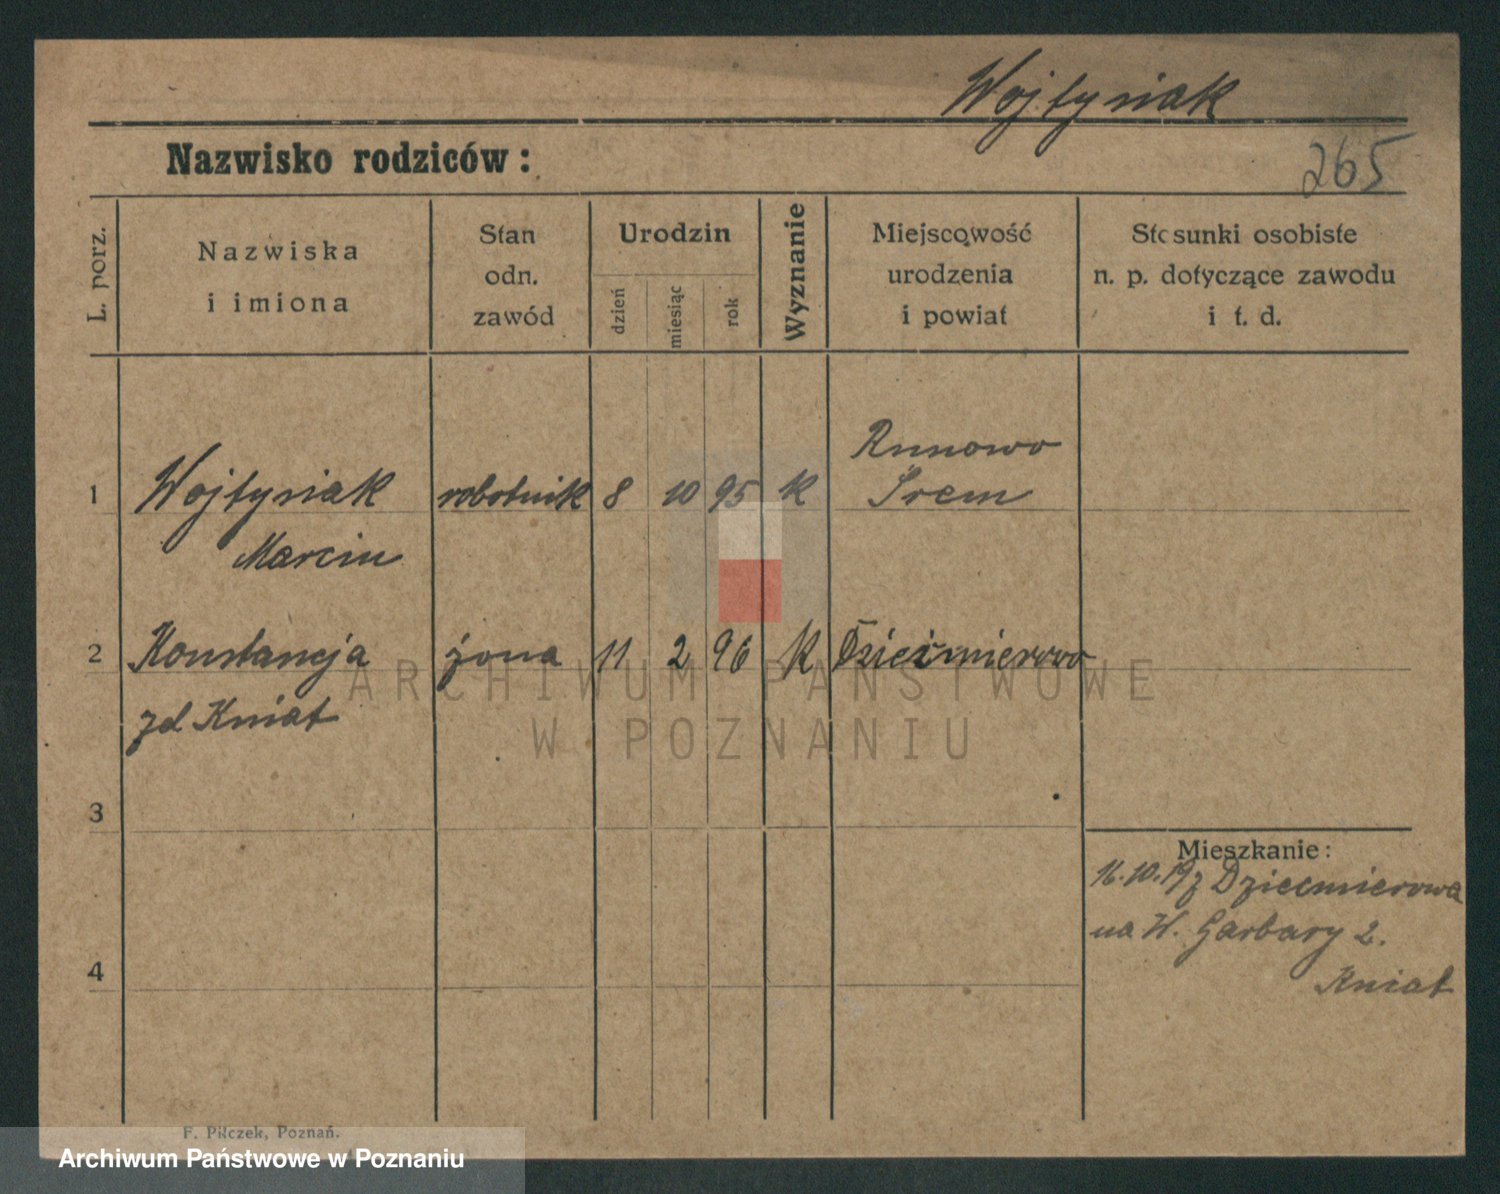 Wojtysiak
Nazwisko rodziców:
265
L. porz.
Nazwiska
i imiona
Stan
odn.
zawód
Urodzin
dzień
miesiąc
rok
Wyznanie
Miejscowość
urodzenia
i powiat
Stosunki osobiste
n. p. dotyczące zawodu
i t. d.
1
Wojtysiak
Marcin
robotnik
8
10
95
k
Runowo
Śrem
2
Konstancja
zd Kniat
żona
11
2
96
k
Dziećmierowo
3
Mieszkanie:
16.10.19 z Dziecmierowa
na W. Garbary 2.
Kniat
4
F. Pilczek, Poznań.
ARCHIWUM PAŃSTWOWE
W POZNANIU
Archiwum Państwowe w Poznaniu